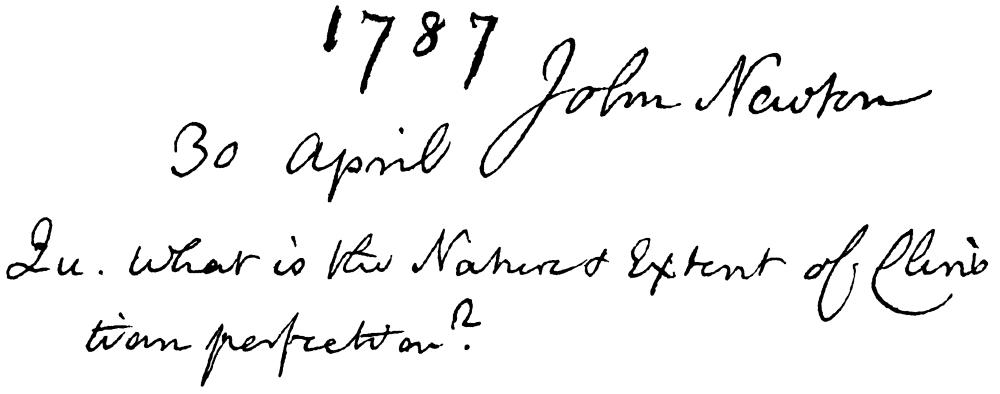 1787
John Newton
30 April
Qu. What is the Nature & Extent of Chris
tian perfection?